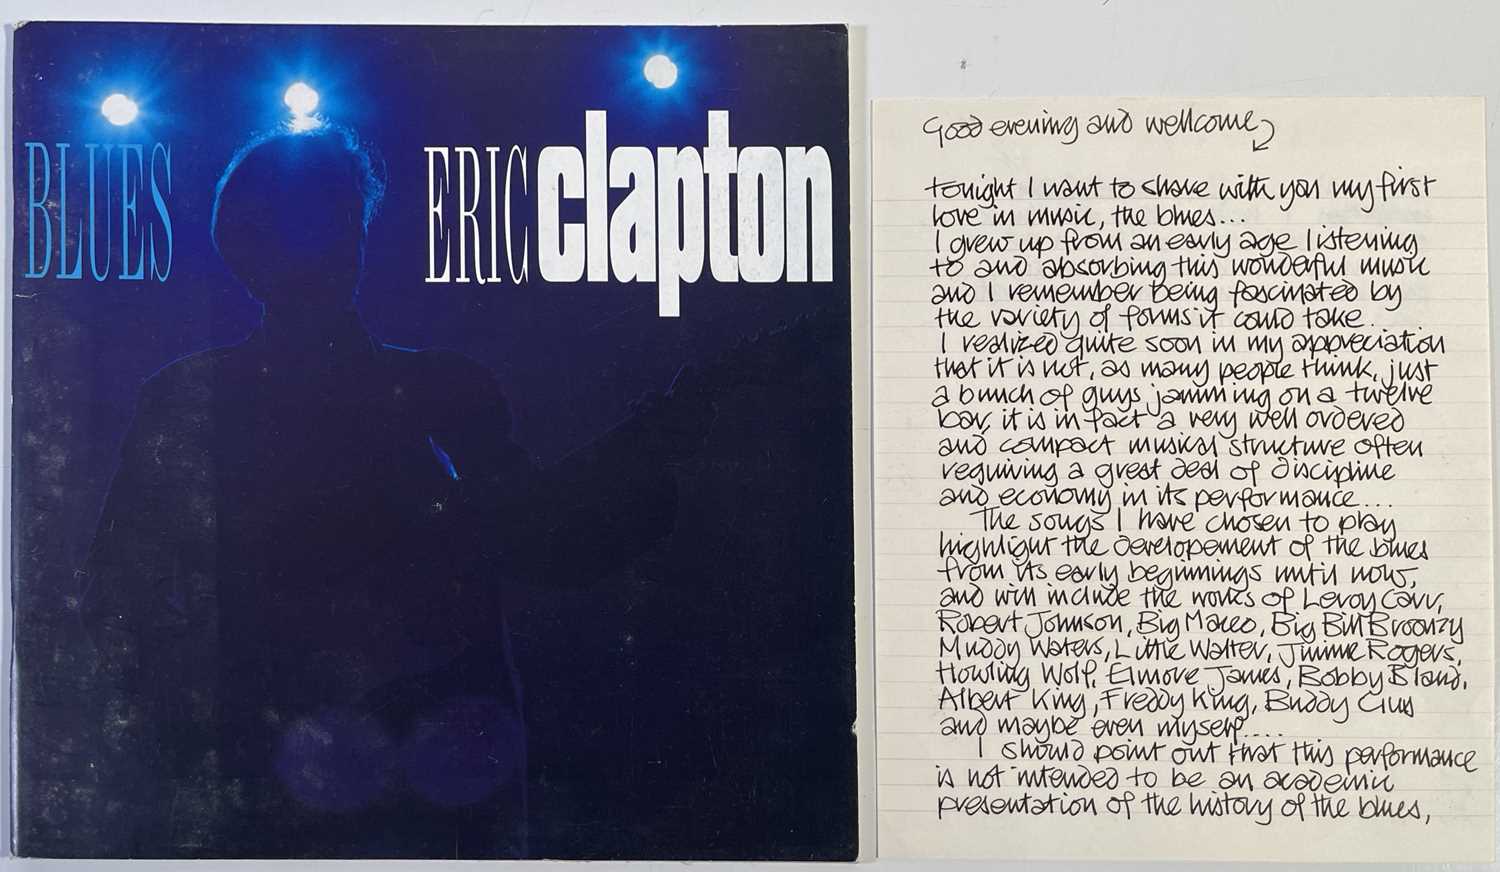 BLUES
ERIC clapton
Good evening and wellcome
tonight I want to share with you my first
love in music, the blues...
I grew up from an early age listening
to and absorbing this wonderful music
and I remember being fascinated by
the variety of forms it could take..
I realized quite soon in my appreciation
that it is not, as many people think, just
a bunch of guys jamming on a twelve
bar, it is in fact a very well ordered
and compact musical structure often
requiring a great deal of discipline
and economy in its performance....
The songs I have chosen to play
highlight the developement of the blues
from its early beginnings until now,
and will include the works of Leroy Carr,
Robert Johnson, Big Maceo, Big Bill Broonzy
Muddy Waters, Little Walter, Jimmie Rogers,
Howling Wolf, Elmore James, Bobby Bland,
Albert King, Freddy King, Buddy Guy
and maybe even myself....
I should point out that this performance
is not intended to be an academic
presentation of the history of the blues,